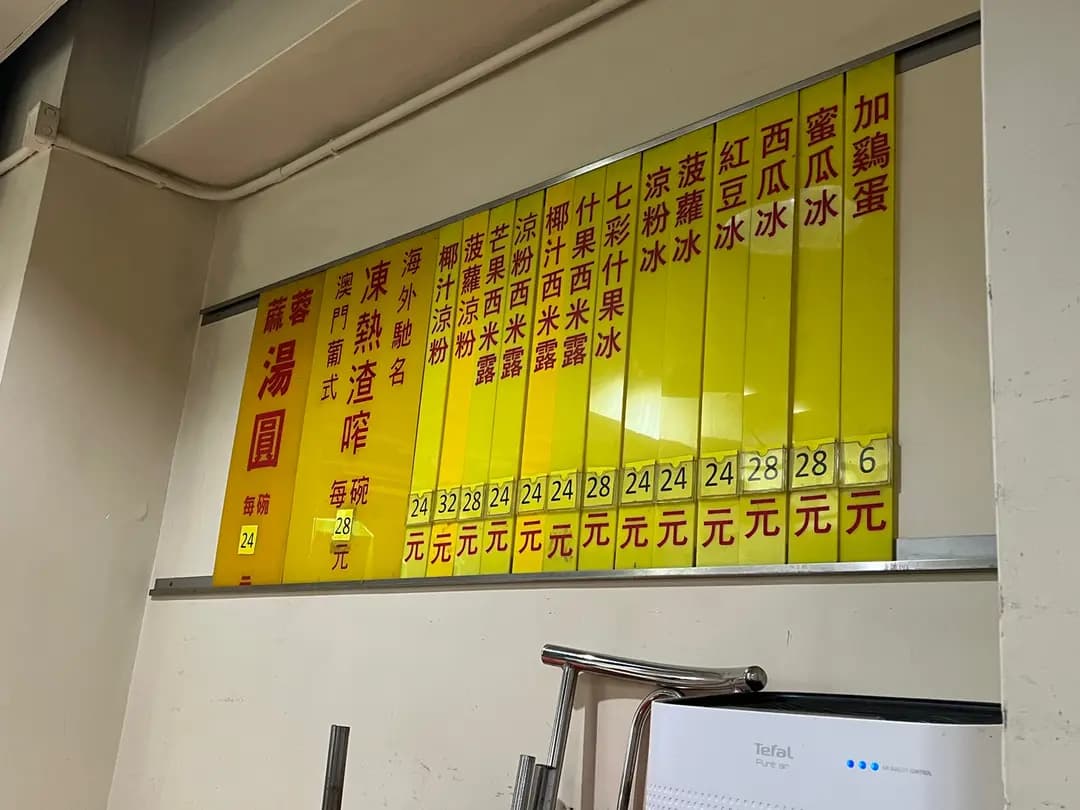 加鷄蛋
6
元
蜜瓜冰
28
元
西瓜冰
28
元
紅豆冰
24
元
菠蘿冰
24
元
涼粉冰
24
元
七彩什果冰
28
元
什果西米露
24
元
椰汁西米露
24
元
涼粉西米露
24
元
芒果西米露
28
元
菠蘿涼粉
32
元
椰汁涼粉
24
元
海外馳名
凍熱渣咋
澳門葡式
每碗
28
元
蔴蓉
湯圓
每碗
24
Tefal
Pure air
AIR QUALITY CONTROL